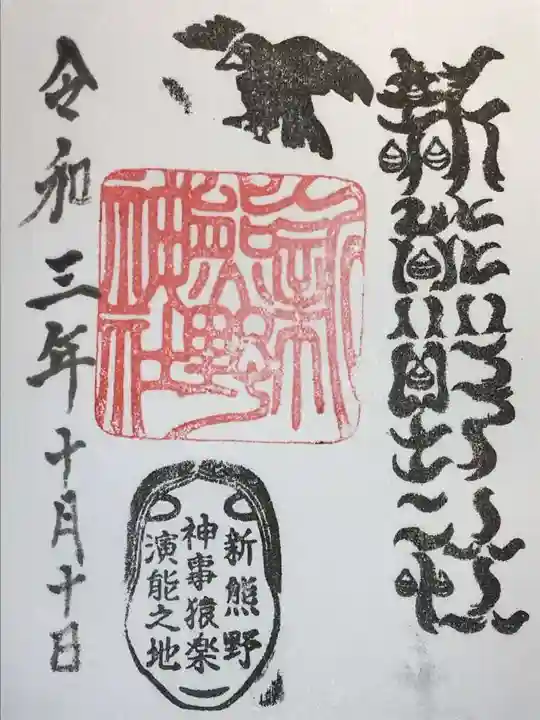 新熊野社
新熊野神社
新熊野
神事猿楽
演能之地
令和三年十月十日